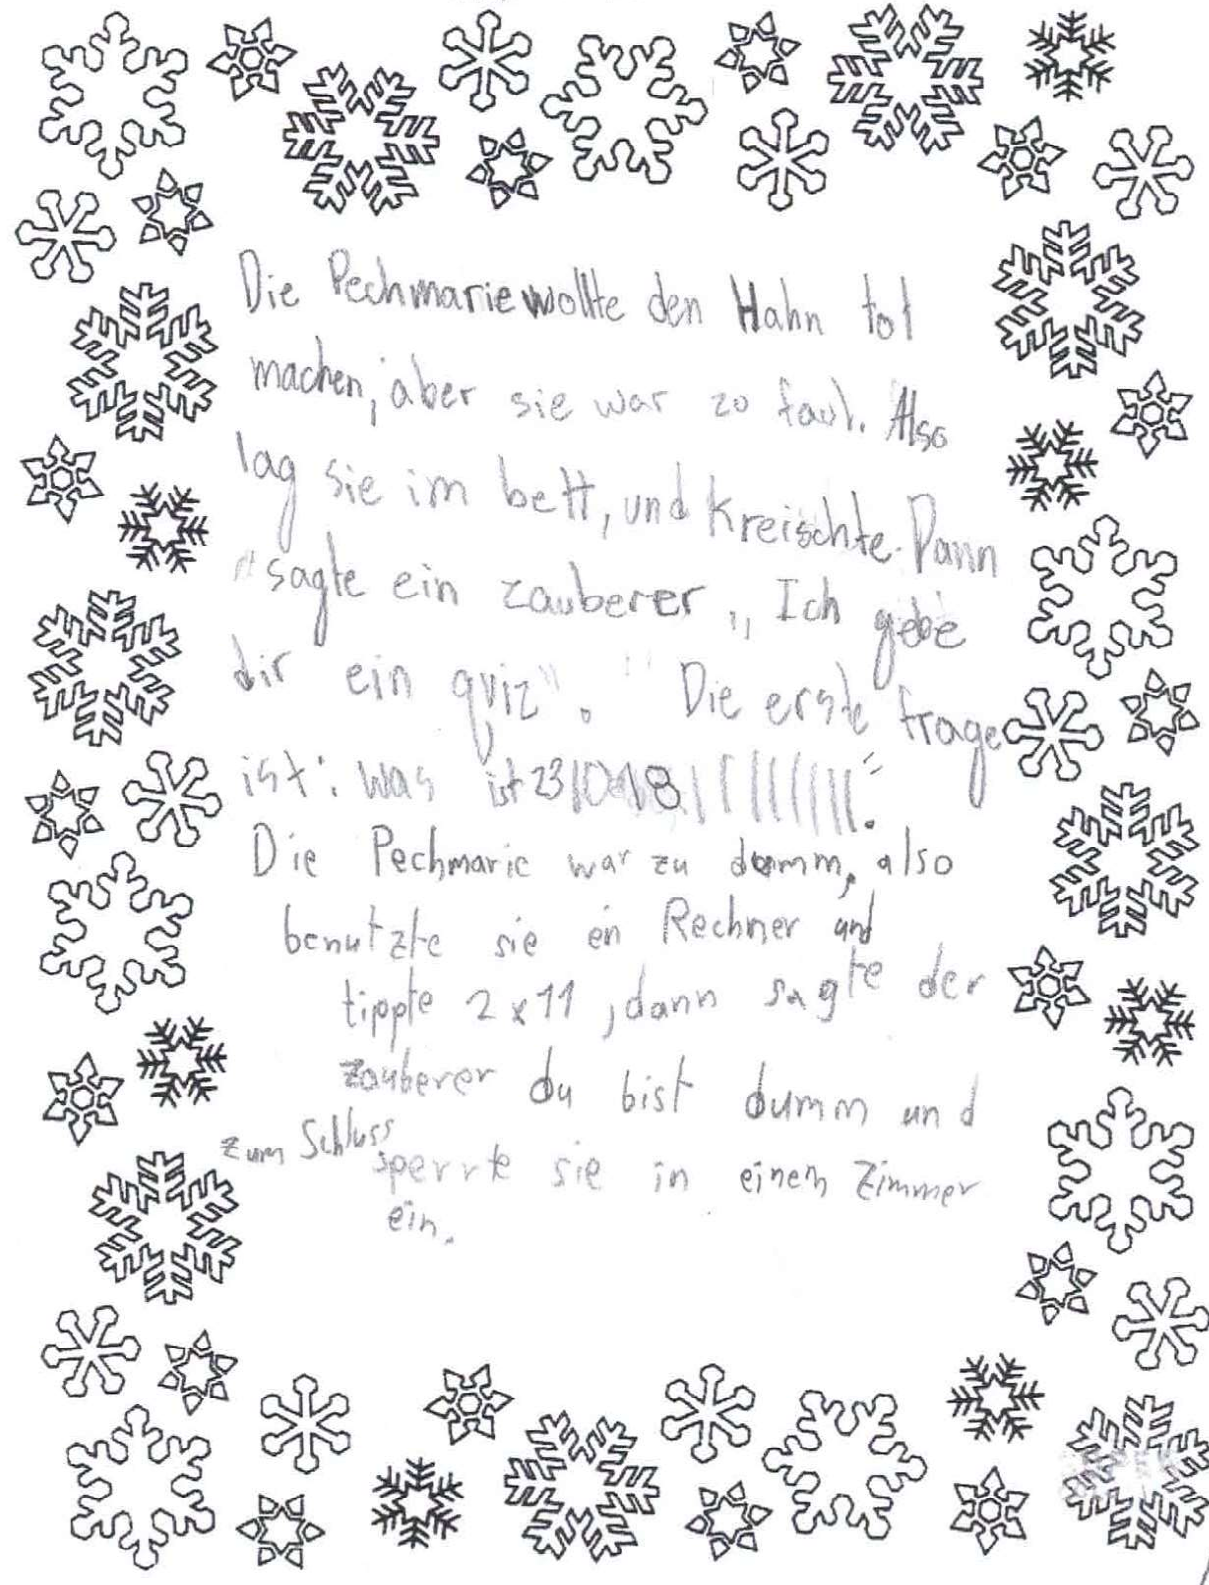 Die Pechmarie wollte den Hahn tot
machen, aber sie war zo faul. Also
lag sie im bett, und kreischte. Dann
sagte ein zauberer „Ich gebe
dir ein quiz". "Die erste frage
ist: was ist 23
Die Pechmarie war zu dumm, also
benutzte sie ein Rechner und
tippte 2x11, dann sagte der
zauberer du bist dumm und
zum Schluss
sperrte sie in einem Zimmer
ein.